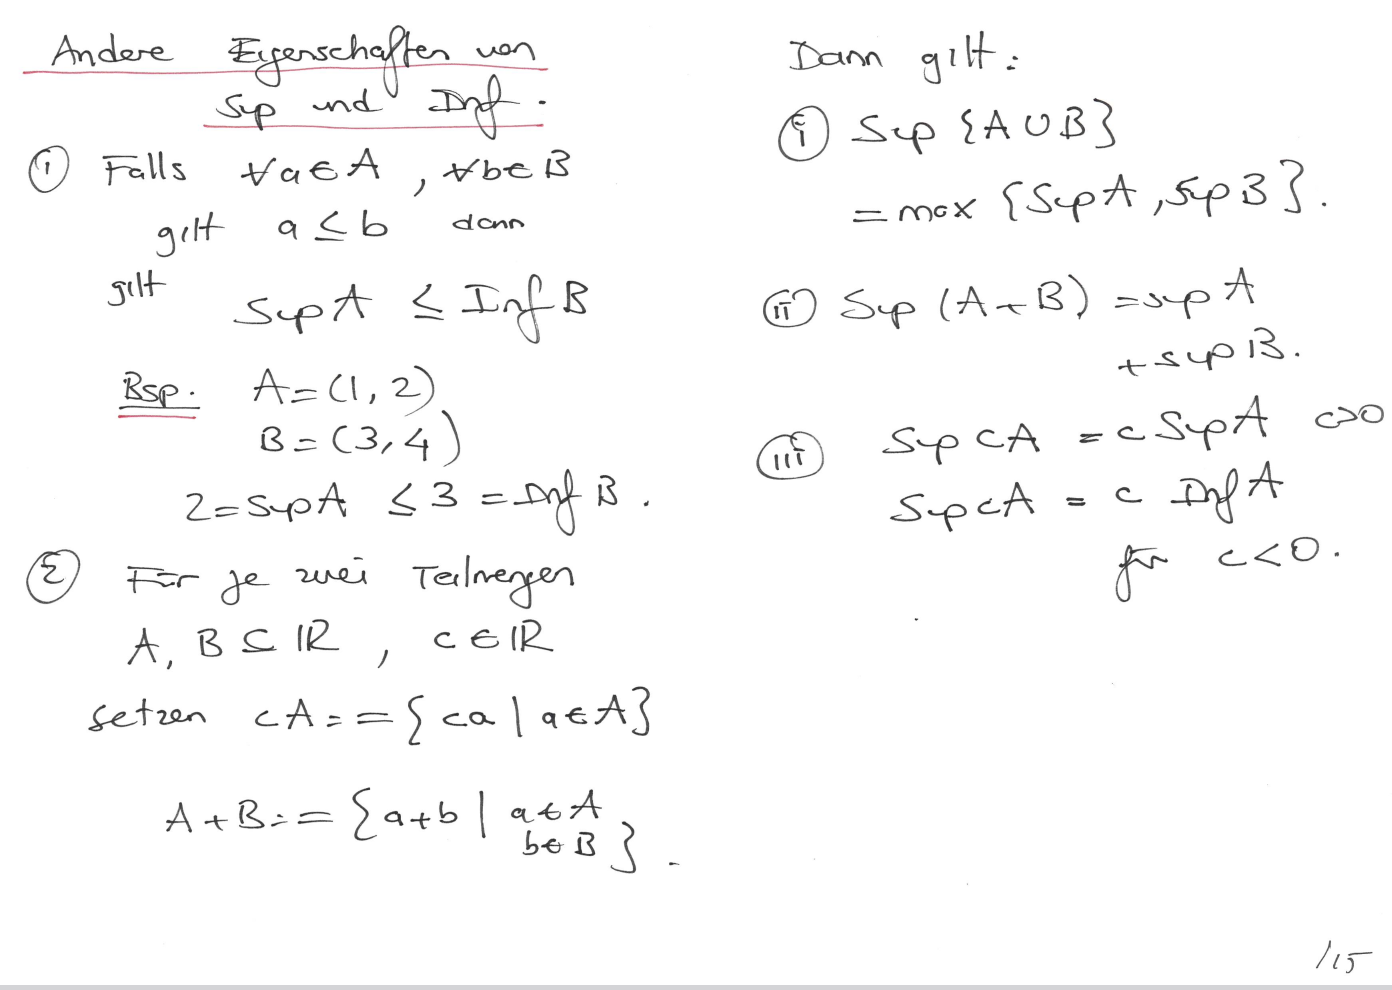 Andere Eigenschaften von
Sup und Inf.
① Falls ∀a∈A, ∀b∈B
gilt a ≤ b dann
gilt
Sup A ≤ Inf B
Bsp. A=(1,2)
B=(3,4)
2=Sup A ≤ 3 = Inf B.
② Für je zwei Teilmengen
A, B ⊆ ℝ, c∈ℝ
setzen cA:={ca | a∈A}
A+B:={a+b | a∈A
b∈B}.
Dann gilt:
ⓘ Sup {A∪B}
=max {Sup A, Sup B}.
ⓘⓘ Sup (A+B) = sup A
+ sup B.
ⓘⓘⓘ Sup cA = c Sup A c>0
Sup cA = c Inf A
für c<0.
/15